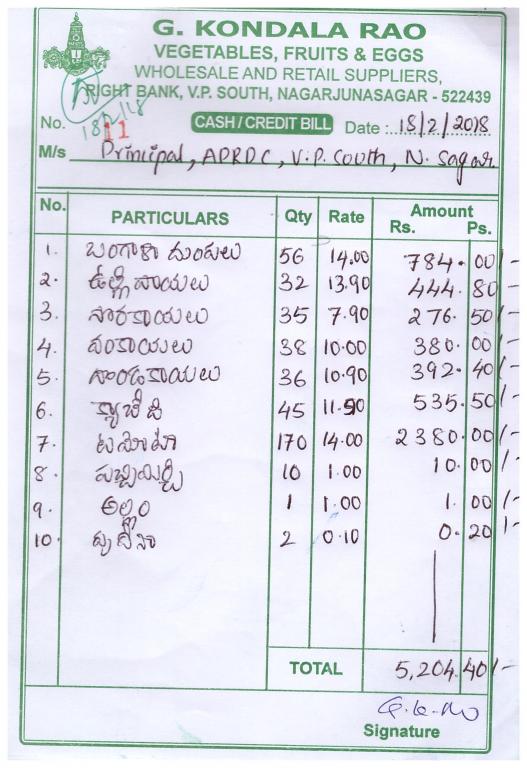 G. KONDALA RAO
VEGETABLES, FRUITS & EGGS
WHOLESALE AND RETAIL SUPPLIERS,
RIGHT BANK, V.P. SOUTH, NAGARJUNASAGAR - 522439
No. 11 CASH / CREDIT BILL Date : 18/2/2018
M/s Principal, APRDC, V.P. South, N. Sagar
No. PARTICULARS Qty Rate Amount Rs. Ps.
1. బంగాళా దుంపలు 56 14.00 784.00/-
2. ఉల్లిపాయలు 32 13.90 444.80/-
3. సొరకాయలు 35 7.90 276.50/-
4. వంకాయలు 38 10.00 380.00/-
5. దొండకాయలు 36 10.90 392.40/-
6. క్యాబేజి 45 11.90 535.50/-
7. టమోటా 170 14.00 2380.00/-
8. పచ్చిమిర్చి 10 1.00 10.00/-
9. అల్లం 1 1.00 1.00/-
10. పుదీనా 2 0.10 0.20/-
TOTAL 5,204.40/-
Signature